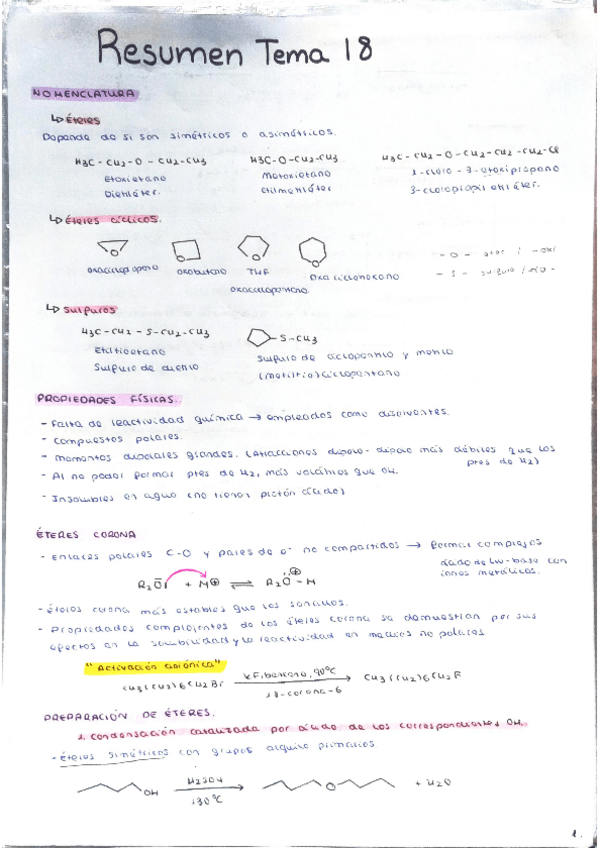 Resumen Tema 18
NOMENCLATURA
↳ Éteres
Depende de si son simétricos o asimétricos.
H3C-CH2-O-CH2-CH3
H3C-O-CH2-CH3
H3C-CH2-O-CH2-CH2-CH2-Cl
Etoxietano
Metoxietano
1-cloro-3-etoxipropano
Dietiléter.
Etilmetiléter
3-cloropropil etil éter.
↳ Éteres cíclicos.
oxaciclopropano
oxobutano
THF
Oxaciclohexano
oxaciclopentano
↳ Sulfuros
H3C-CH2-S-CH2-CH3
S-CH3
Etiltioetano
Sulfuro de ciclopentilo y metilo
Sulfuro de dietilo
(metiltio)ciclopentano
PROPIEDADES FÍSICAS.
- Falta de reactividad química → empleados como disolventes.
- Compuestos polares.
- Momentos dipolares grandes. (Atracciones dipolo-dipolo más débiles que los
ptes de H2)
- Al no poder formar ptes de H2, más volátiles que OH.
- Insolubles en agua (no tienen protón ácido)
ÉTERES CORONA
- Enlaces polares C-O y pares de e- no compartidos → Formar complejos
ácido de Lw-base con
iones metálicos.
R2O + M⊕ ⇌ R2O⊕-M
- Éteres corona más estables que los sencillos.
- Propiedades complejantes de los éteres corona se demuestran por sus
efectos en la solubilidad y la reactividad en medios no polares.
"Activación aniónica"
CH3(CH2)6CH2Br
KF, benceno, 90ºC
18-corona-6
CH3(CH2)6CH2F
PREPARACIÓN DE ÉTERES.
1. Condensación catalizada por ácido de los correspondientes OH.
- Éteres simétricos con grupos alquilo primarios
OH
H2SO4
130ºC
O
+ H2O
1.